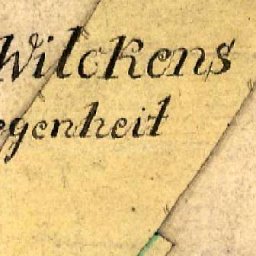 Wilckens
egenheit